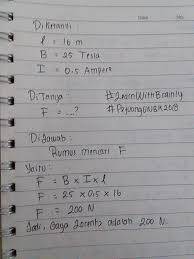 Diketahui:
l = 16 m
B = 25 Tesla
I = 0.5 Ampere
Ditanya: #LearnWithBrainly
F = ....? #PejuangUNBK2018
Dijawab:
Rumus mencari F
Yaitu:
F = B x I x l
F = 25 x 0.5 x 16
F = 200 N
Jadi, Gaya Lorentz adalah 200 N.